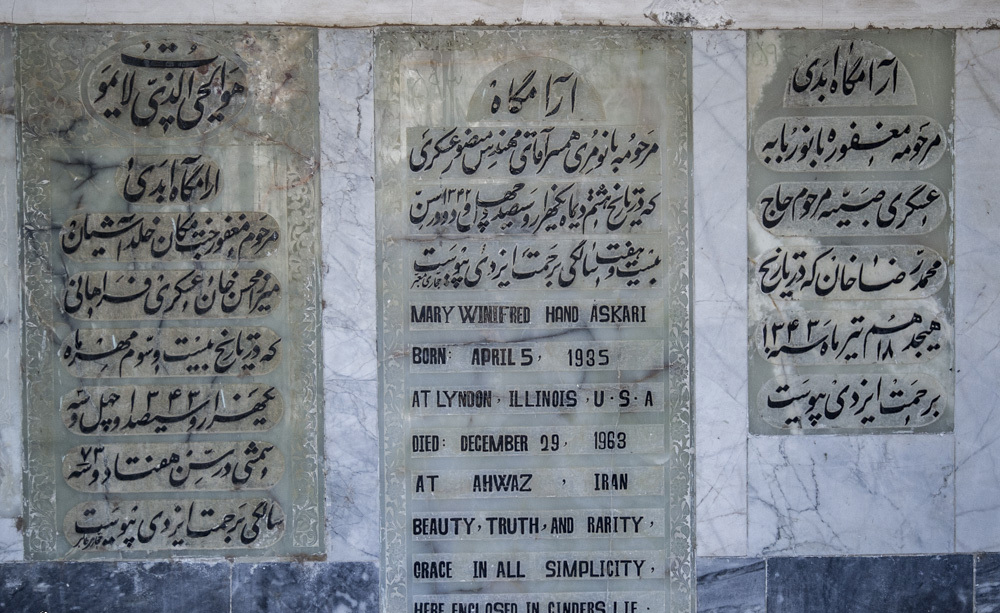 آرامگاه ابدی
مرحومه مغفوره بانو ربابه
عسکری صبیه مرحوم حاج
محمد رضا خان که در تاریخ
هیجدهم ۱۸ تیر ماه سنه ۱۳۴۳
برحمت ایزدی پیوست
آرامگاه
مرحومه بانو مری همسر آقای مهندس منصور عسکری
که در تاریخ هشتم دیماه یکهزار و سیصد و چهل و دو ۱۳۴۲ در سن
بیست و هفت سالگی برحمت ایزدی پیوست
MARY WINIFRED HAND ASKARI
BORN: APRIL 5, 1935
AT LYNDON, ILLINOIS, U.S.A
DIED: DECEMBER 29, 1963
AT AHWAZ, IRAN
BEAUTY, TRUTH, AND RARITY,
GRACE IN ALL SIMPLICITY,
HERE ENCLOSED IN CINDERS LIE.
هوالحی الذی لایموت
آرامگاه ابدی
مرحوم مغفور جنت مکان خلد آشیان
میرزا محسن خان عسکری فراهانی
که در تاریخ بیست و سوم مهر ماه
یکهزار و سیصد و چهل و سه ۱۳۴۳
شمسی در سن هفتاد و سه ۷۳
سالگی برحمت ایزدی پیوست